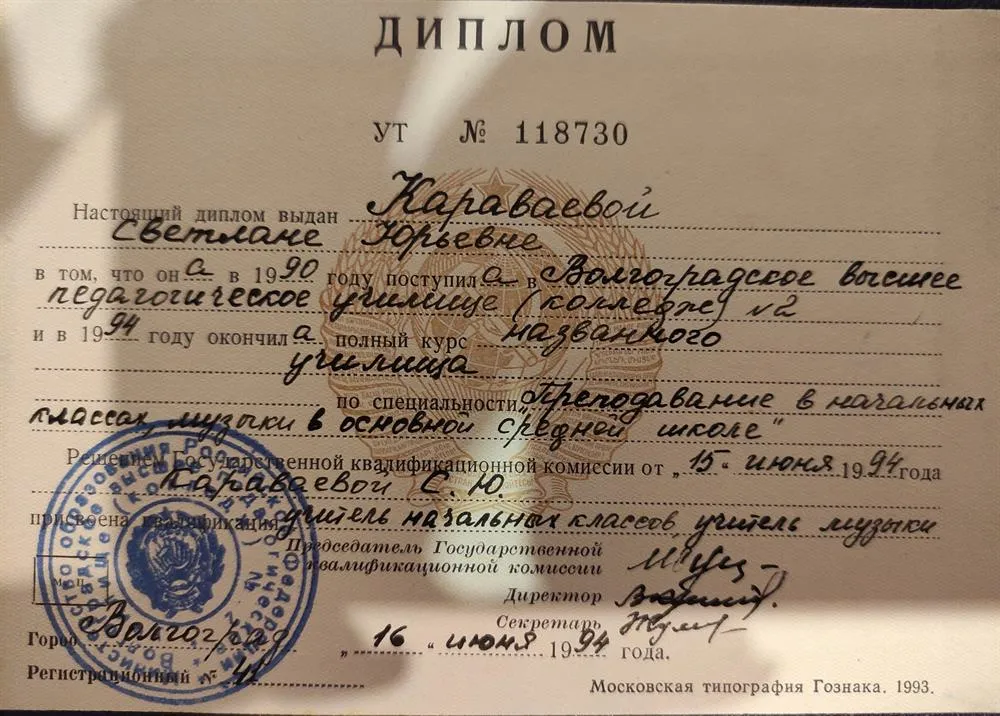 ДИПЛОМ
УТ № 118730
Настоящий диплом выдан Караваевой
Светлане Юрьевне
в том, что он а в 1990 году поступил а в Волгоградское высшее
педагогическое училище (колледж) №2
и в 1994 году окончил а полный курс названного
училища
по специальности „Преподавание в начальных
классах, музыки в основной средней школе"
Решением Государственной квалификационной комиссии от „15" июня 1994 года
Караваевой С. Ю.
присвоена квалификация учитель начальных классов, учитель музыки
Председатель Государственной
квалификационной комиссии
Директор
Секретарь
М. П.
Город Волгоград „16" июня 1994 года.
Регистрационный №
Московская типография Гознака. 1993.